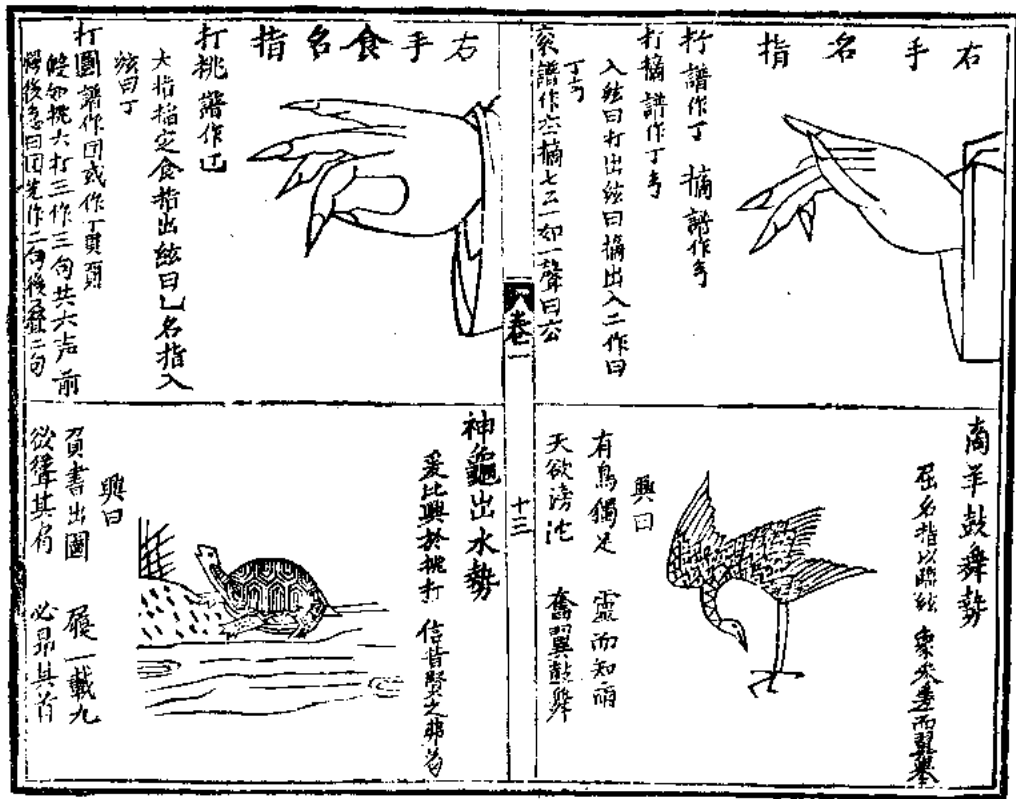 右手名指
打譜作丁 摘譜作䒑
打摘譜作丁
入絃曰打出絃曰摘出入二作曰
丁
家譜作六摘七二一如一聲曰六公
商羊鼓舞勢
屈名指以臨絃 象
而翼舉
興曰
有鳥獨足 靈而知雨
天欲滂沱 奮翼鼓舞
卷一
十三
右手食名指
打挑譜作
大指掐定食指出絃曰乚名指入
絃曰丁
打圓譜作囙或作丁
如挑六打三作三句共六声前
慢後急曰囙先作二句後疊二句
神龜出水勢
爰比興於挑打 信昔賢之
興曰
負書出圖 履一載九
欲聳其肩 必昂其首